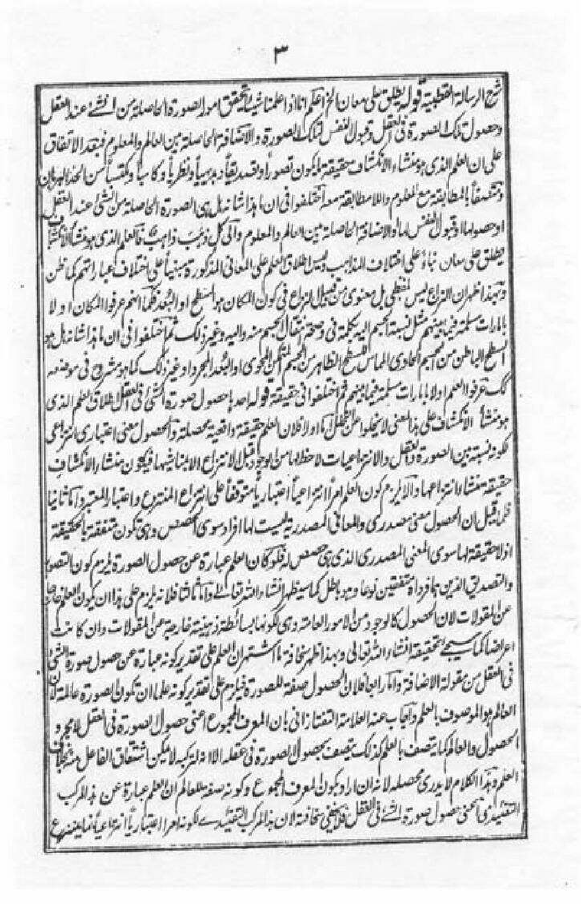 ٣
شرح الرسالة القطبية قوله يطلق على معان الخ اعلم انا اذا علمنا شيئا يتحقق امور الصورة الحاصلة من الشيء عند العقل
وحصول تلك الصورة في العقل وقبول النفس لتلك الصورة والاضافة الحاصلة بين العالم والمعلوم فبعد الاتفاق
على ان العلم الذي هو منشاء الانكشاف حقيقة ما يكون تصورا وتصديقا وبديهيا ونظريا وكاسبا ومكتسبا من الحد والبرهان
ومتصفا بالمطابقة مع المعلوم واللامطابقة معه اختلفوا في ان ما هذا شانه هل هي الصورة الحاصلة من الشيء عند العقل
او حصولها او قبول النفس لها او الاضافة الحاصلة بين العالم والمعلوم والى كل ذهب ذاهب فالعلم الذي هو منشاء الانكشاف
يطلق على معان بناء على اختلاف المذاهب ليس اطلاق العلم على المعاني المذكورة مبنيا على اختلاف عباراتهم كما ظن
وبهذا ظهر ان النزاع ليس لفظي بل معنوي من قبيل النزاع في كون المكان هو السطح او البعد فكما انهم عرفوا المكان اولا
بامارات مسلمة فيما بينهم مثل نسبة الجسم اليه بكلمة في وصحة انتقال الجسم منه واليه وغير ذلك ثم اختلفوا في ان ما هذا شانه هل هو
السطح الباطن من الجسم الحاوي المماس للسطح الظاهر من الجسم المتمكن المحوى او البعد المجرد او غير ذلك كما هو مشروح في موضعه
كذلك عرفوا العلم اولا بامارات مسلمة فيما بينهم ثم اختلفوا في حقيقة قوله احدها حصول صورة الشيء في العقل اطلاق العلم الذي
هو منشاء الانكشاف على هذا المعنى لا يخلو عن الخلل اما اولا فلان العلم حقيقة واقعية محصلة والحصول معنى اعتباري انتزاعي
لكونه نسبة بين الصورة والعقل والانتزاعيات لا حظ لها من الوجود قبل الانتزاع الا بمناشيها فيكون منشاء الانكشاف
حقيقة منشاء انتزاعها والا يلزم كون العلم امرا انتزاعيا اعتباريا متوقفا على انتزاع المنتزع واعتبار المعتبر واما ثانيا
فلما قيل ان الحصول معنى مصدري والمعاني المصدرية ليست لها افراد سوى الحصص وهي تكون متفقة بالحقيقة
اذ لا حقيقة لها سوى المعنى المصدري الذي هي حصص له فلو كان العلم عبارة عن حصول الصورة يلزم كون التصور
والتصديق الذين هما فرداه متفقين نوعا وهو باطل كما سيظهر انشاء الله تعالى واما ثالثا فلانه يلزم على هذا ان يكون العلم خارجا
عن المقولات لان الحصول كالوجود من الامور العامة وهي لكونها بسائط ذهنية خارجة عن المقولات وان كانت
اعراضا كما سيجيء تحقيقه انشاء الله تعالى وبهذا ظهر سخافة ما اشتهر ان العلم على تقدير كونه عبارة عن حصول صورة الشيء
في العقل من مقولة الاضافة واما رابعا فلان الحصول صفة للصورة فيلزم على تقدير كونه علما ان تكون الصورة عالمة لان
العالم هو الموصوف بالعلم واجاب عنه العلامة التفتازاني بان المعرف المجموع اعني حصول الصورة في العقل لا مجرد
الحصول والعالم كما يتصف بالعلم كذلك يتصف بحصول الصورة في عقله الا انه لتركبه لا يمكن اشتقاق الفاعل منه بخلاف
العلم وهذا الكلام لا يدرى محصله لانه ان اراد بكون المعرف المجموع وكونه صفة للعالم ان العلم عبارة عن هذا المركب
التقييدي اعني حصول صورة الشيء في العقل فلا يخفى سخافته لان هذا المركب التقييدي لكونه امرا اعتباريا انتزاعيا